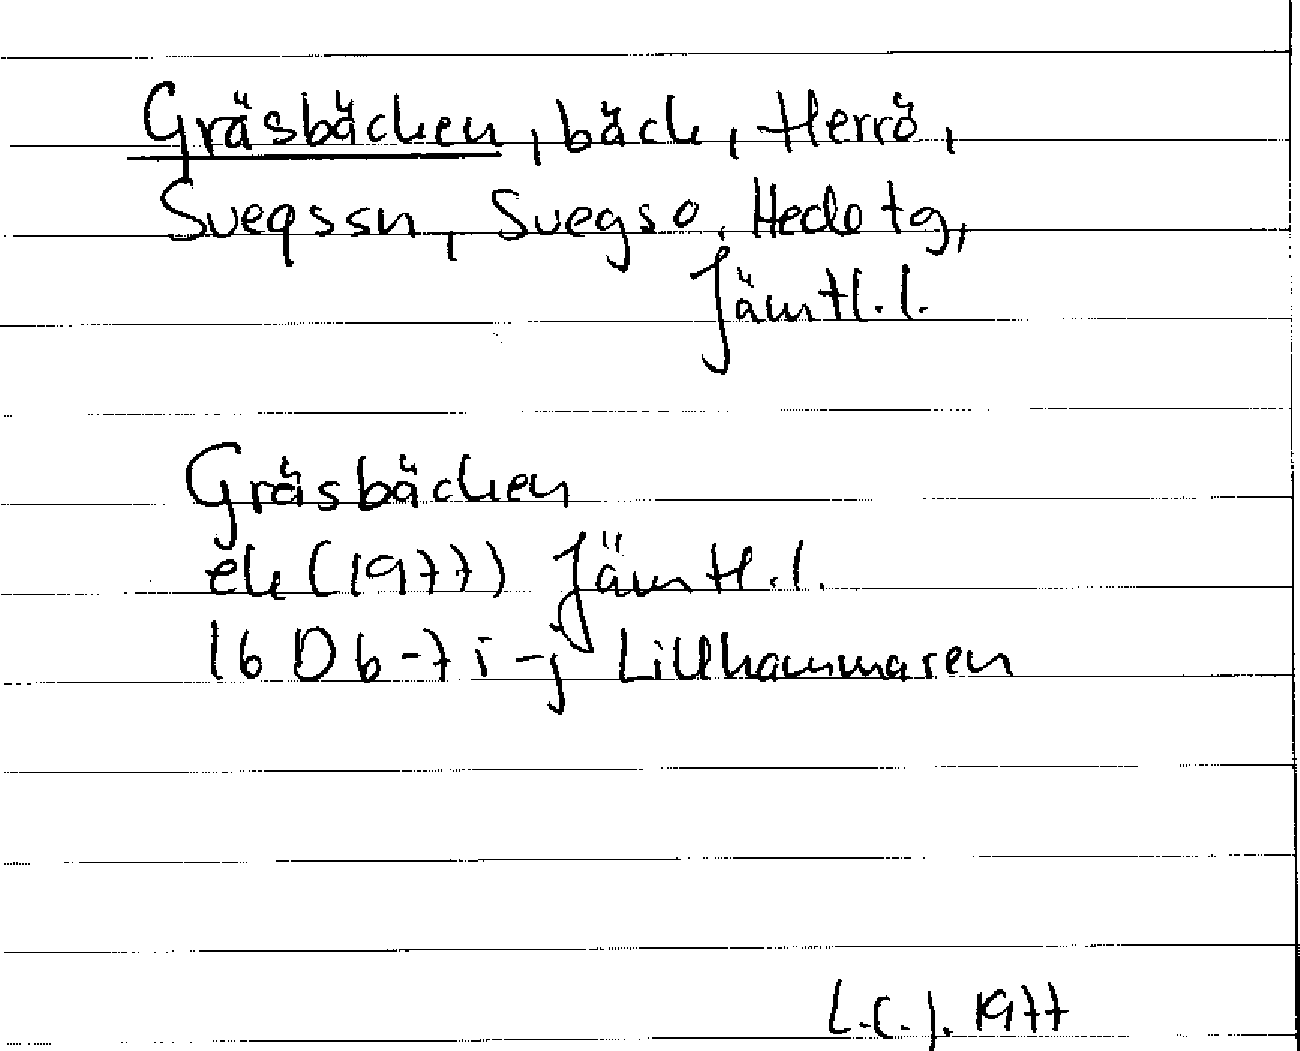 Gräsbäcken, bäck, Herrö,
Svegssn, Svegs o. Hede tg,
Jämtl. l.
Gräsbäcken
ek (1977) Jämtl. l.
16 D 6-7 i-j Lillhammaren
L.C.J. 1977